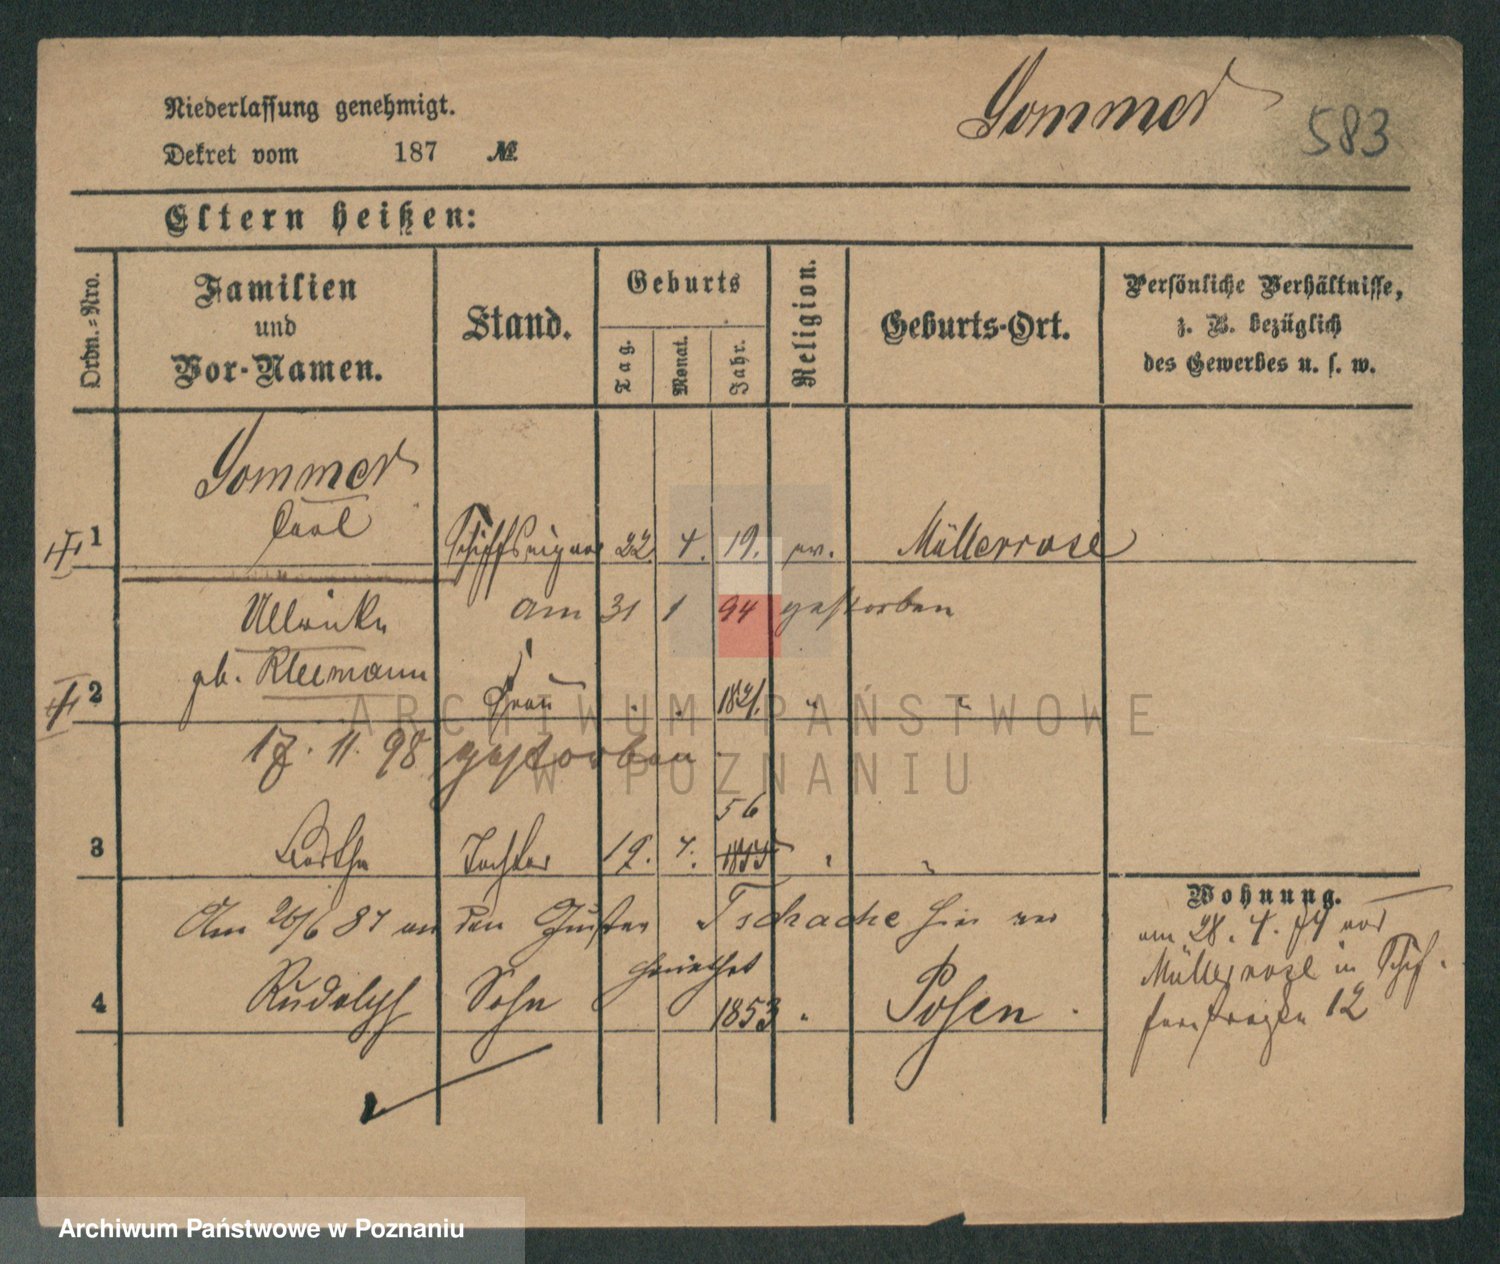 Sommer 583
Niederlassung genehmigt.
Dekret vom 187 №
Eltern heißen:
Ordn.=Nro.
Familien
und
Vor-Namen.
Stand.
Geburts
Tag.
Monat.
Jahr.
Religion.
Geburts-Ort.
Persönliche Verhältnisse,
z. B. bezüglich
des Gewerbes u. s. w.
Sommer
Carl
1 Schiffseigner 22 4. 19. ev. Müllerrose
Ullrike am 31 1 94 gestorben
geb. Kleemann
2 Frau 1821. "
17. 11. 98 gestorben
56
3 Bertha Tochter 19. 4. 1855 "
Am 26/6 81 an den Tschache hier ver
heirathet
4 Rudolph Sohn 1853 " Posen.
Wohnung.
am 28. 4. 74 von
Müllerrose in Schif-
12
ARCHIWUM PAŃSTWOWE
W POZNANIU
Archiwum Państwowe w Poznaniu